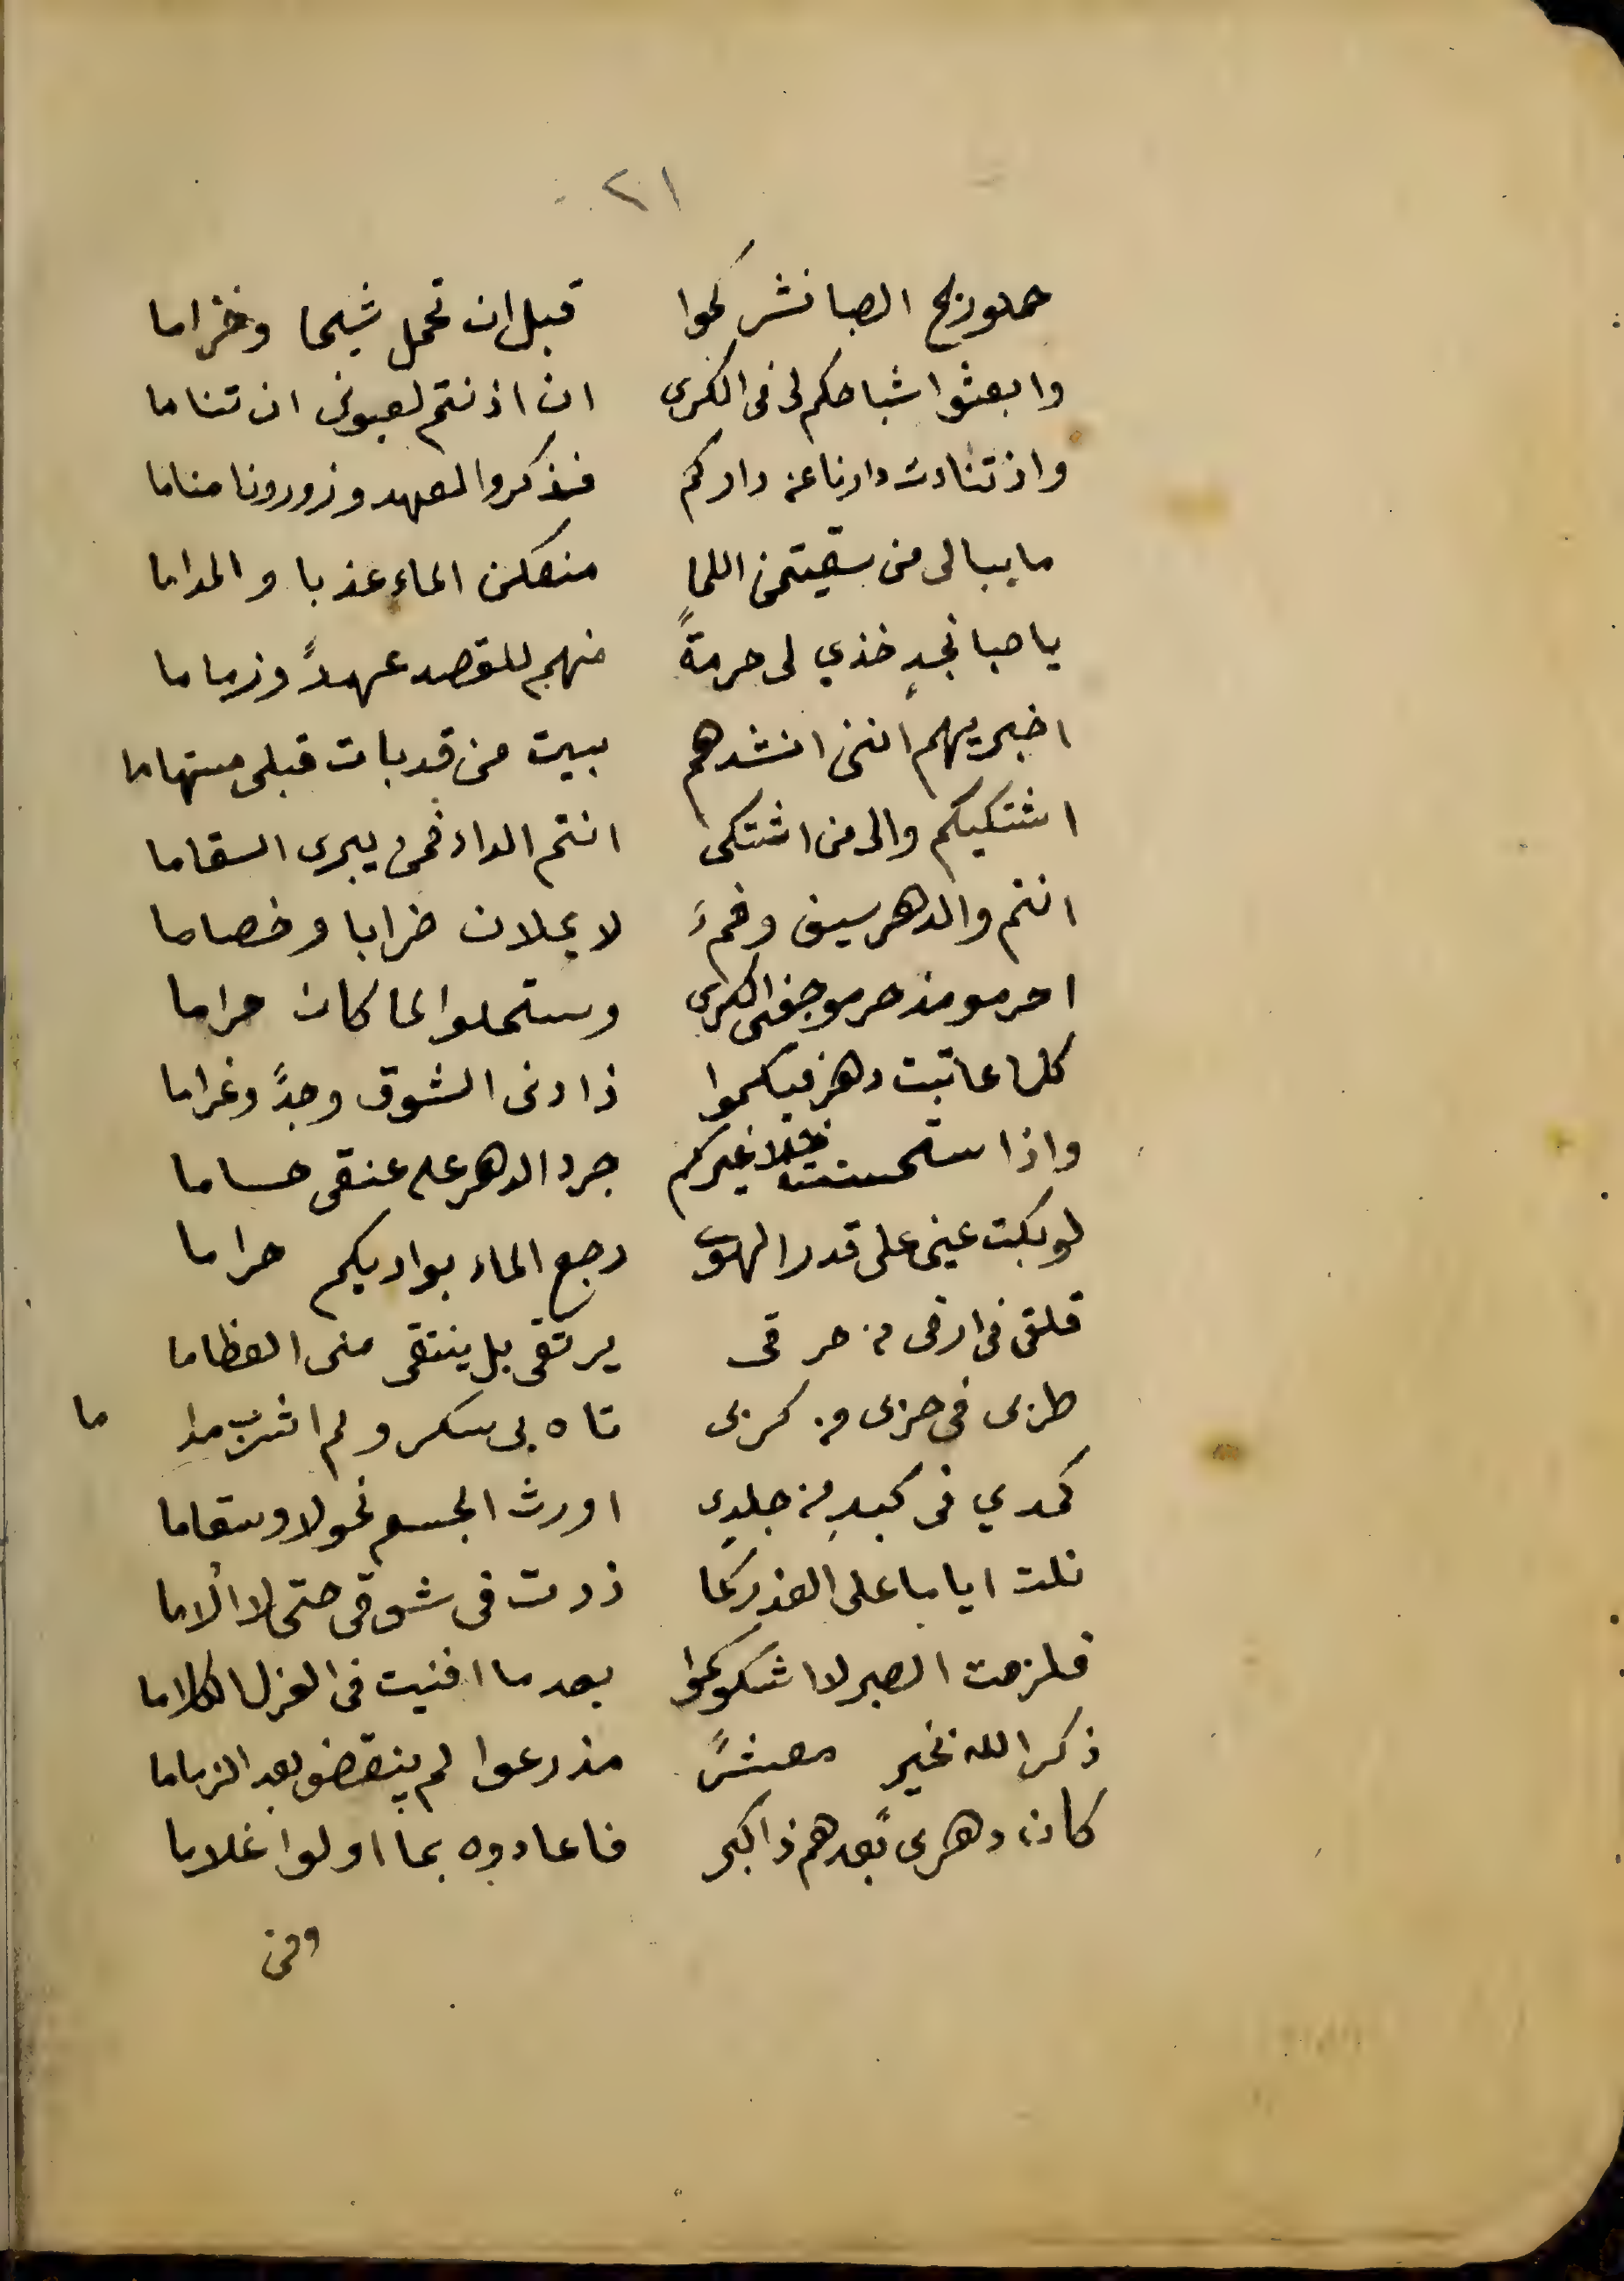 ٢١
حملوريح الصبا نشركموا قبل ان تحمل شيحا وخزاما
وابعثوا اشباحكم لى فى الكرى ان اذنتم لعيونى ان تناما
واذ تناءت دارنا عن داركم فذكروا العهد وزورونا مناما
ما يبالى من سقيتمن اللما منعكن الماء عذبا والمداما
يا صبا نجدٍ خذي لى حرمةً منهم للقصد عهدً وزماما
اخبريهم اننى انشدهم ببيت من قد بات قبلى مستهاما
اشتكيكم والى من اشتكى انتم الداء فمن يبرى السقاما
انتم والدهر سيف وفم لا يملان ضرابا وخصاما
احرمو مذ حرمو جفنى الكرى وستحلوا لما كان حراما
كلما عاتبت دهر فيكموا زادنى الشوق وجدً وغراما
واذا ستحسنت خلا غيركم جرد الدهر على عنقى حساما
لو بكت عينى على قدر الهوى رجع الماء بواديكم حراما
قلقى فى ارقى من حرقى يرتقى بل ينتقى منى العظاما
طربى فى حزبى من كربى تاه بى سكر ولم اشرب مدا ما
كمدي فى كبدٍ من جلدى اورث الجسم نحولا وسقاما
نلت اياما على العذر كما زدت فى شوقى حتى لا الاما
فلزمت الصبر لا اشكوكموا بعد ما افنيت فى الغزل الكلاما
ذكر الله بخير معشرً مذ رعوا لم ينقضو بعد الزماما
كان دهرى بعدهم ذا كبر فاعادوه بما اولوا غلاما
ومن